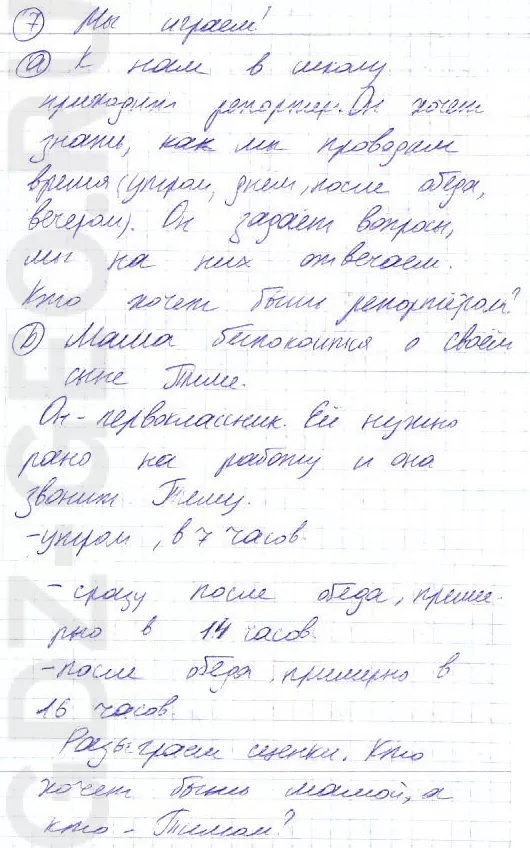 7 Мы играем!
a К нам в школу
приходит репортер. Он хочет
знать, как мы проводим
время (утром, днём, после обеда,
вечером). Он задаёт вопросы,
мы на них отвечаем.
Кто хочет быть репортёром?
b Мама беспокоится о своём
сыне Тиме.
Он - первоклассник. Ей нужно
рано на работу и она
звонит Тиму.
- утром, в 7 часов.
- сразу после обеда, приме-
рно в 14 часов.
- после обеда, примерно в
16 часов.
Разыграем сценки. Кто
хочет быть мамой, а
кто - Тимом?
GDZ-GEO.RU